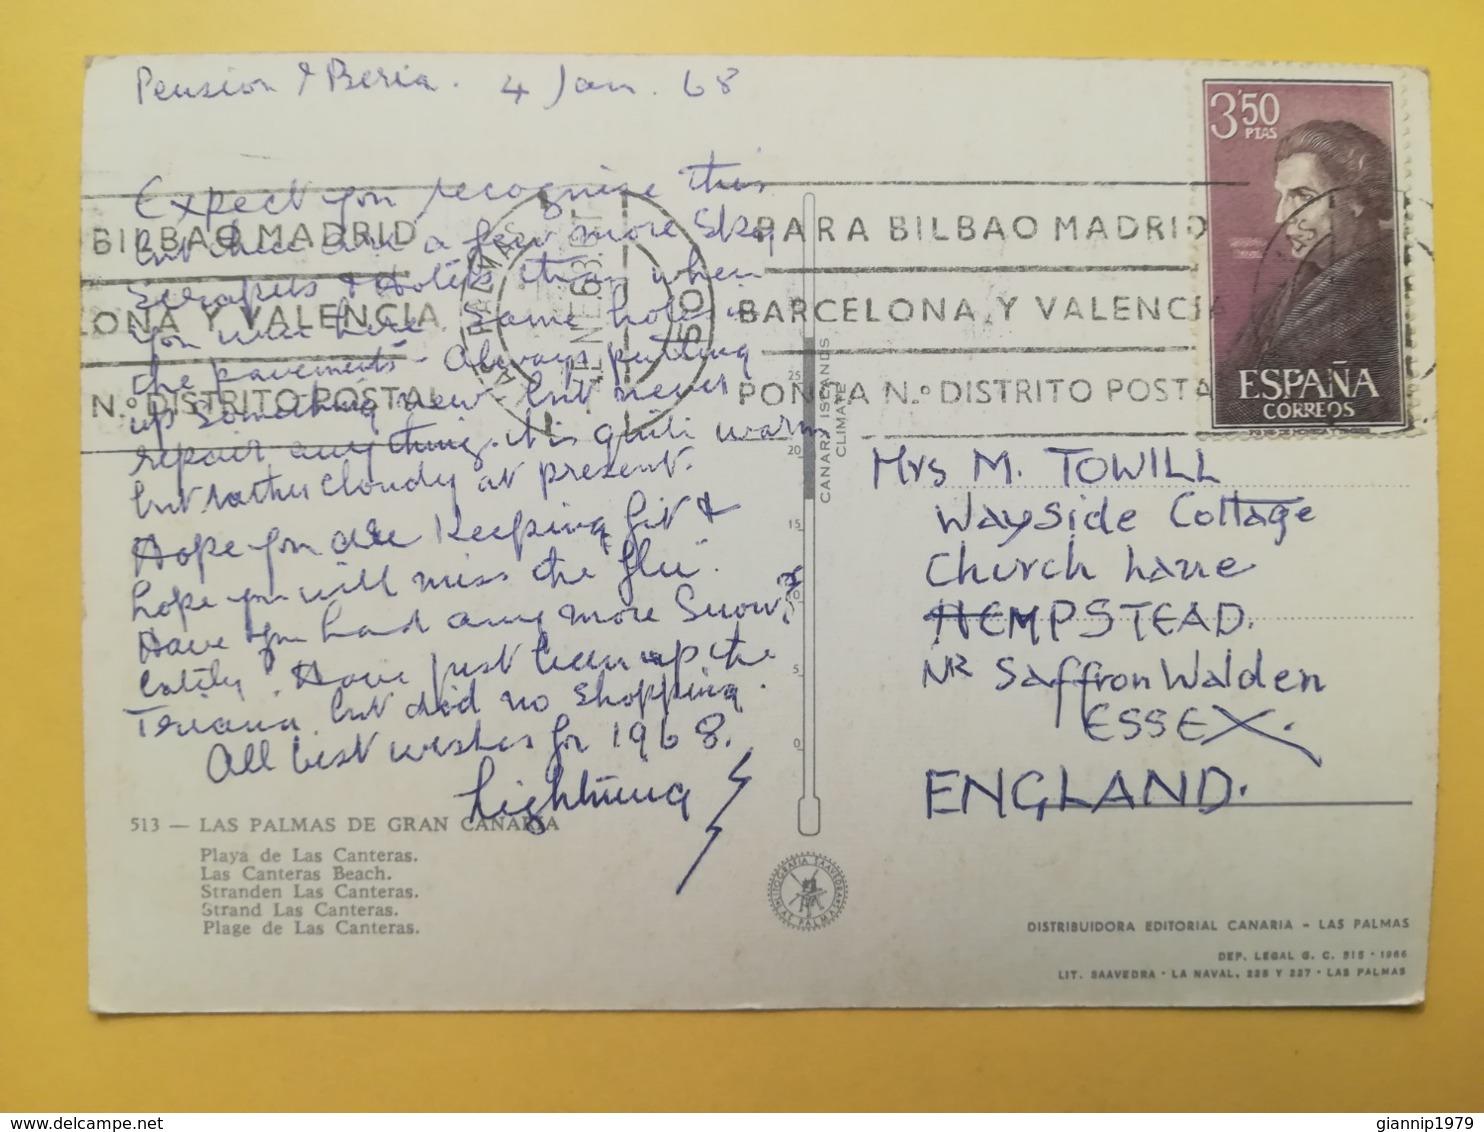 Pension Iberia. 4 Jan. 68
Expect you recognise this
but there are a few more Sky
Scrapers & Hotels than when
you were here. Same holes in
the pavements - always putting
up something new but never
repair anything. It is quite warm
but rather cloudy at present.
Hope you are keeping fit &
hope you will miss the "flu".
Have you had any more Snow?
lately. Have just been up the
Triana but did no shopping.
All best wishes for 1968.
Lightning
513 — LAS PALMAS DE GRAN CANARIA
Playa de Las Canteras.
Las Canteras Beach.
Stranden Las Canteras.
Strand Las Canteras.
Plage de Las Canteras.
BILBAO MADRID
LONA Y VALENCIA
N.º DISTRITO POSTAL
PARA BILBAO MADRID
BARCELONA, Y VALENCIA
PONGA N.º DISTRITO POSTA
3'50
PTAS
ESPAÑA
CORREOS
CANARY ISLANDS
CLIMATE
25
20
15
10
5
0
Mrs M. TOWILL
Wayside Cottage
Church Lane
HEMPSTEAD.
NR Saffron Walden
ESSEX.
ENGLAND.
LITOGRAFIA SAAVEDRA
LAS PALMAS
DISTRIBUIDORA EDITORIAL CANARIA - LAS PALMAS
DEP. LEGAL G. C. 515 - 1966
LIT. SAAVEDRA - LA NAVAL, 225 Y 227 - LAS PALMAS
delcampe.net
giannip1979